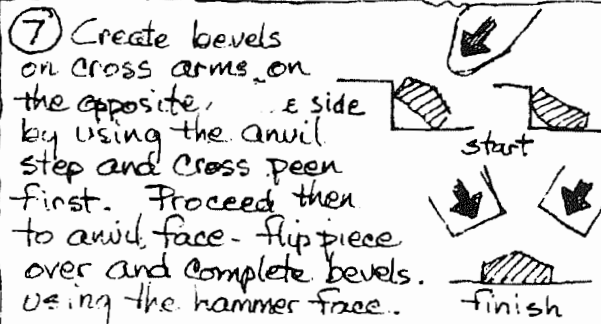 7 Create bevels
on cross arms on
the opposite, & side
by using the anvil
step and cross peen
first. Proceed then
to anvil face - flip piece
over and complete bevels.
using the hammer face.
start
finish